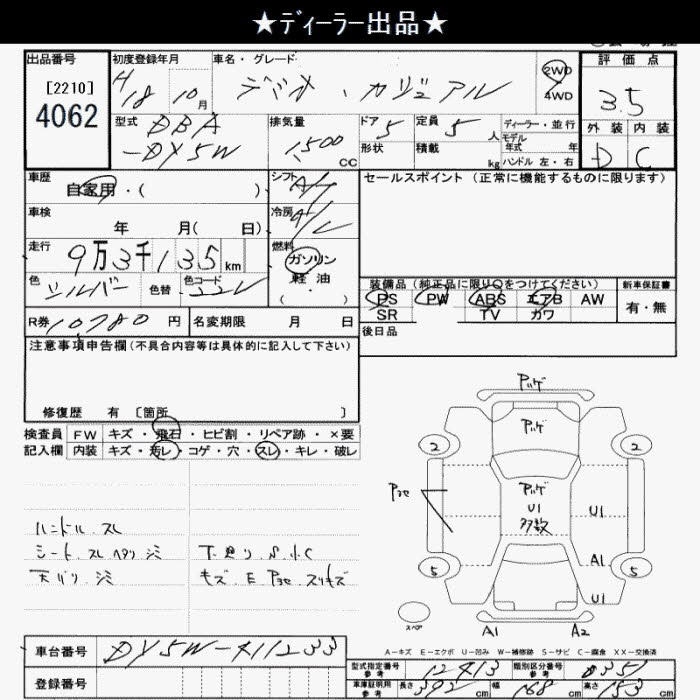 ★ディーラー出品★
出品番号
[2210]
4062
初度登録年月
H18 10月
車名・グレード
デミオ・カジュアル
2WD
4WD
評価点
3.5
外装 内装
D C
型式
DBA
-DY5W
排気量
1,500
CC
ドア 5
形状
定員 5 人
積載 kg
ディーラー・並行
モデル
年式 年
ハンドル 左・右
車歴
自家用・( )
シフト A/T
セールスポイント (正常に機能するものに限ります)
車検
年 月( 日)
冷房 A/C
走行
9万3千135km
燃料
ガソリン
軽油
( )
色 シルバー
色替
色コード 22V
装備品(純正品に限り○をつけてください)
新車保証書
PS PW ABS エアB AW
有・無
SR TV カワ
後日品
R券 10,780 円
名変期限 月 日
注意事項申告欄(不具合内容等は具体的に記入して下さい)
修復歴 有 〔箇所 〕
検査員 FW キズ・飛石・ヒビ割・リペア跡・×要
記入欄 内装 キズ・汚レ・コゲ・穴・スレ・キレ・破レ
ハンドル スレ
シート スレ ヘタリ シミ
天バリ シミ
下廻り S、C
キズ E
スリキズ
2
2
U1
多数
U1
A1
5
5
U1
スペア
A1
A2
A-キズ E-エクボ U-凹み W-補修跡 S-サビ C-腐食 XX-交換済
車台番号 DY5W-411233
登録番号
型式指定番号
参考
12413
類別区分番号
参考
車庫証明用
参考
長さ 392 cm
幅 168 cm
高さ 153 cm